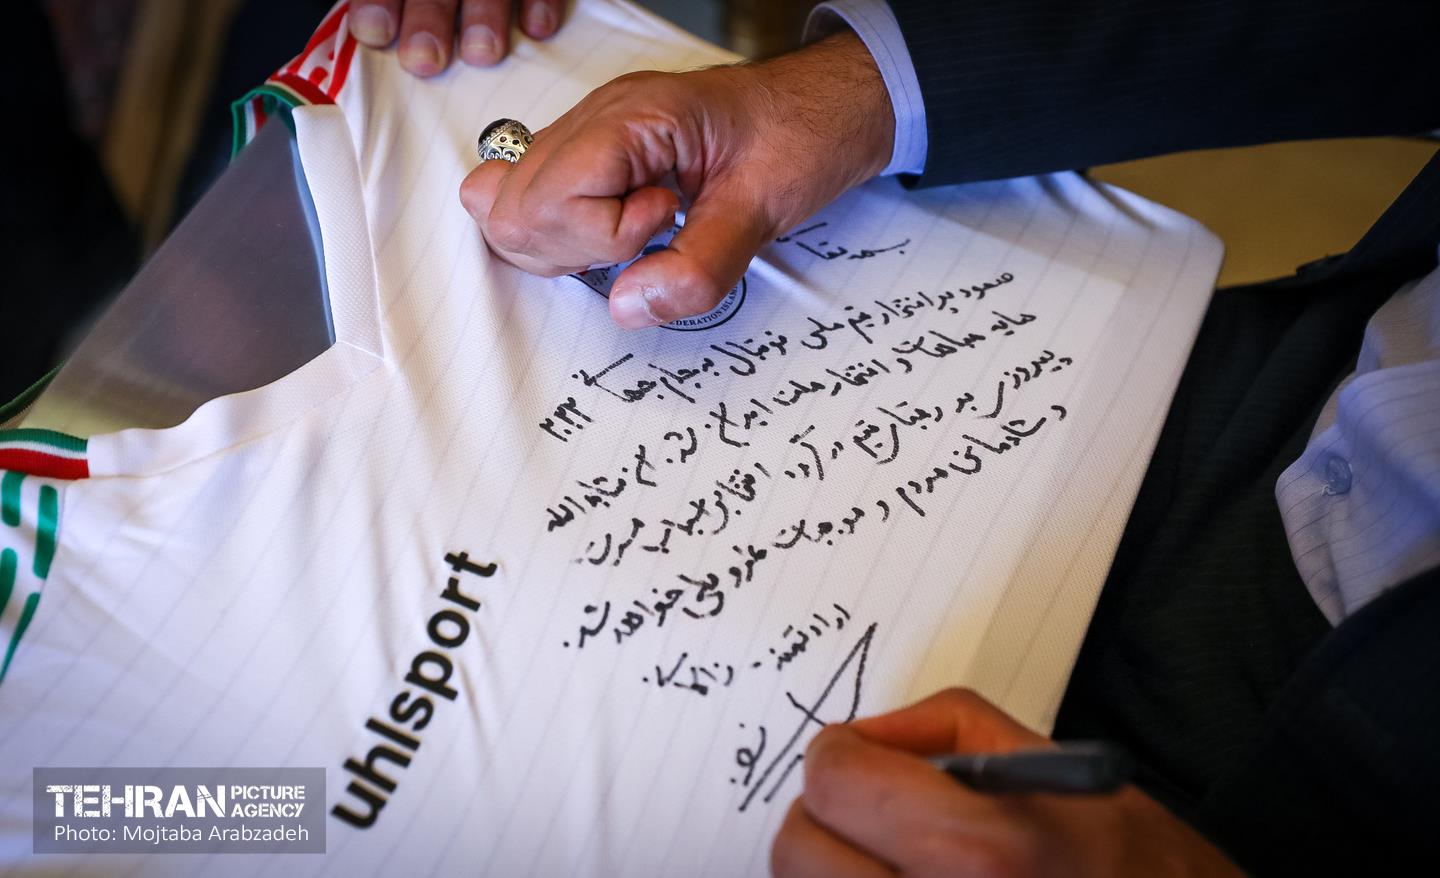 بسمه تعالی
صعود پر افتخار تیم ملی فوتبال به جام جهانی ۲۰۲۲
مایه مباهات و افتخار ملت ایران شد. ان شاءالله
پیروزی در رقابتهای افتخار
و شادمانی مردم و موجبات غرور ملی خواهد شد.
ارادتمند - زاکانی
FEDERATION ISLAM
uhlsport
TEHRAN PICTURE AGENCY
Photo: Mojtaba Arabzadeh